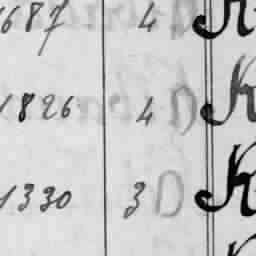 687 4 K
1826 4 K
1330 3 K